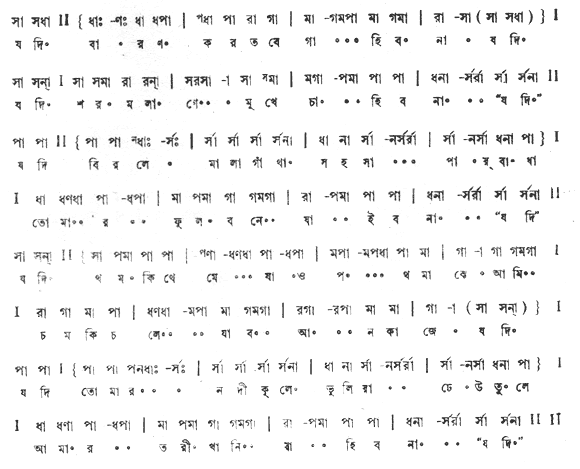 সা সধা II { ধাঃ -ণঃ ধা ধপা | ᵖধা পা রা গা | মা -গমপা মা গমা | রা -সা (সা সধা) } I
য দি॰ বা ॰ র ণ॰ ক র ত বে গা ॰॰॰ হি ব॰ না ॰ য দি॰
সা সন্া I সা সমা রা রন্া | সরসা -া সা ᵖমা | মগা -পমা পা পা | ধনা -র্সর্রা র্সা র্সনা II
য দি॰ শ র॰ ম লা॰ গে॰॰ ॰ মু খে চা॰ ॰॰ হি ব না॰ ॰॰ ॰ “য দি॰”
পা পা II { পা পা ᵖধাঃ -র্সঃ | র্সা র্সা র্সা র্সনা | ধা না র্সা -নর্সর্রা | র্সা -নর্সা ধনা পা } I
য দি বি র লে ॰ মা লা গাঁ থা॰ স হ সা ॰॰॰ পা ॰য়্ বা॰ ধা
I ধা ধণধা পা -ধপা | মা পমা গা গমগা | রা -পমা পা পা | ধনা -র্সর্রা র্সা র্সনা II
তো মা॰॰ র ॰॰ ফু ল॰ ব নে॰॰ যা ॰॰ ই ব না॰ ॰॰ ॰ “য দি”
সা সন্া II { সা পমা পা পা | ᵖণা -ধণধা পা -ধপা | মপা -মপধা পা মা | গা -া গা গমগা I
য দি॰ থ ম॰ কি থে মে ॰॰॰ যা ॰ও প॰ ॰॰॰ থ মা ঝে ॰ আ মি॰॰
I রা গা মা পা | ধণধা -মপা মা গমগা | রগা -রপা মা মা | গা -া (সা সন্া) } I
চ ম কি চ লে॰॰ ॰॰ যা ব॰॰ আ॰ ॰॰ ন কা জে ॰ য দি॰
পা পা I { পা পা পনধাঃ -র্সঃ | র্সা র্সা র্সা র্সনা | ধা না র্সা -নর্সর্রা | র্সা -নর্সা ধনা পা } I
য দি তো মা র॰॰ ॰ ন দী কূ লে॰ ভু লি য়া ॰॰॰ ঢে ॰॰ উ তু॰ লে
I ধা ধণা পা -ধপা | মা পমা গা গমগা | রা -পমা পা পা | ধনা -র্সর্রা র্সা র্সনা II II
আ মা॰ র ॰॰ ত রী॰ খা নি॰॰ বা ॰॰ হি ব না॰ ॰॰ ॰ “য দি॰”